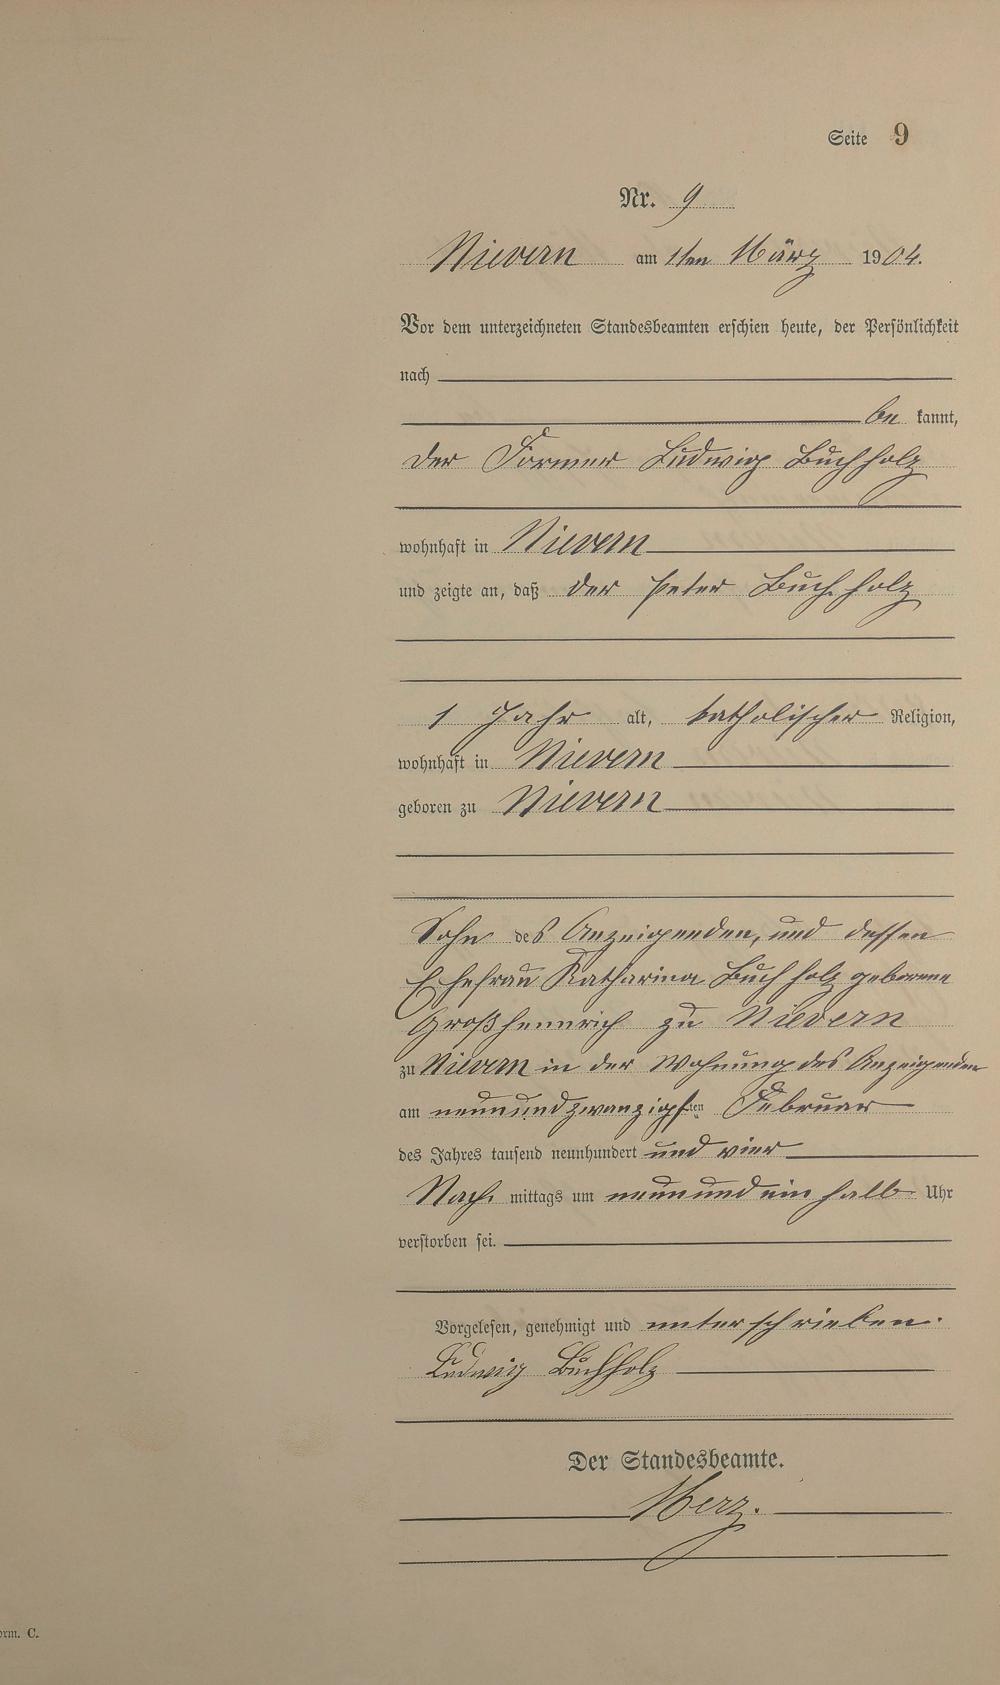 Seite 9
Nr. 9
Nievern am 1ten März 1904.
Vor dem unterzeichneten Standesbeamten erschien heute, der Persönlichkeit
nach
be kannt,
der Former Ludwig Buchholz
wohnhaft in Nievern
und zeigte an, daß der Peter Buchholz
1 Jahr alt, katholischer Religion,
wohnhaft in Nievern
geboren zu Nievern
Sohn des Anzeigenden, und dessen
Ehefrau Katharina Buchholz geborene
Großhennrich zu Nievern
zu Nievern in der Wohnung des Anzeigenden
am neunundzwanzigsten Februar
des Jahres tausend neunhundert und vier
Nach mittags um neun und ein halb Uhr
verstorben sei.
Vorgelesen, genehmigt und unterschrieben.
Ludwig Buchholz
Der Standesbeamte.
Merz.
orm. C.